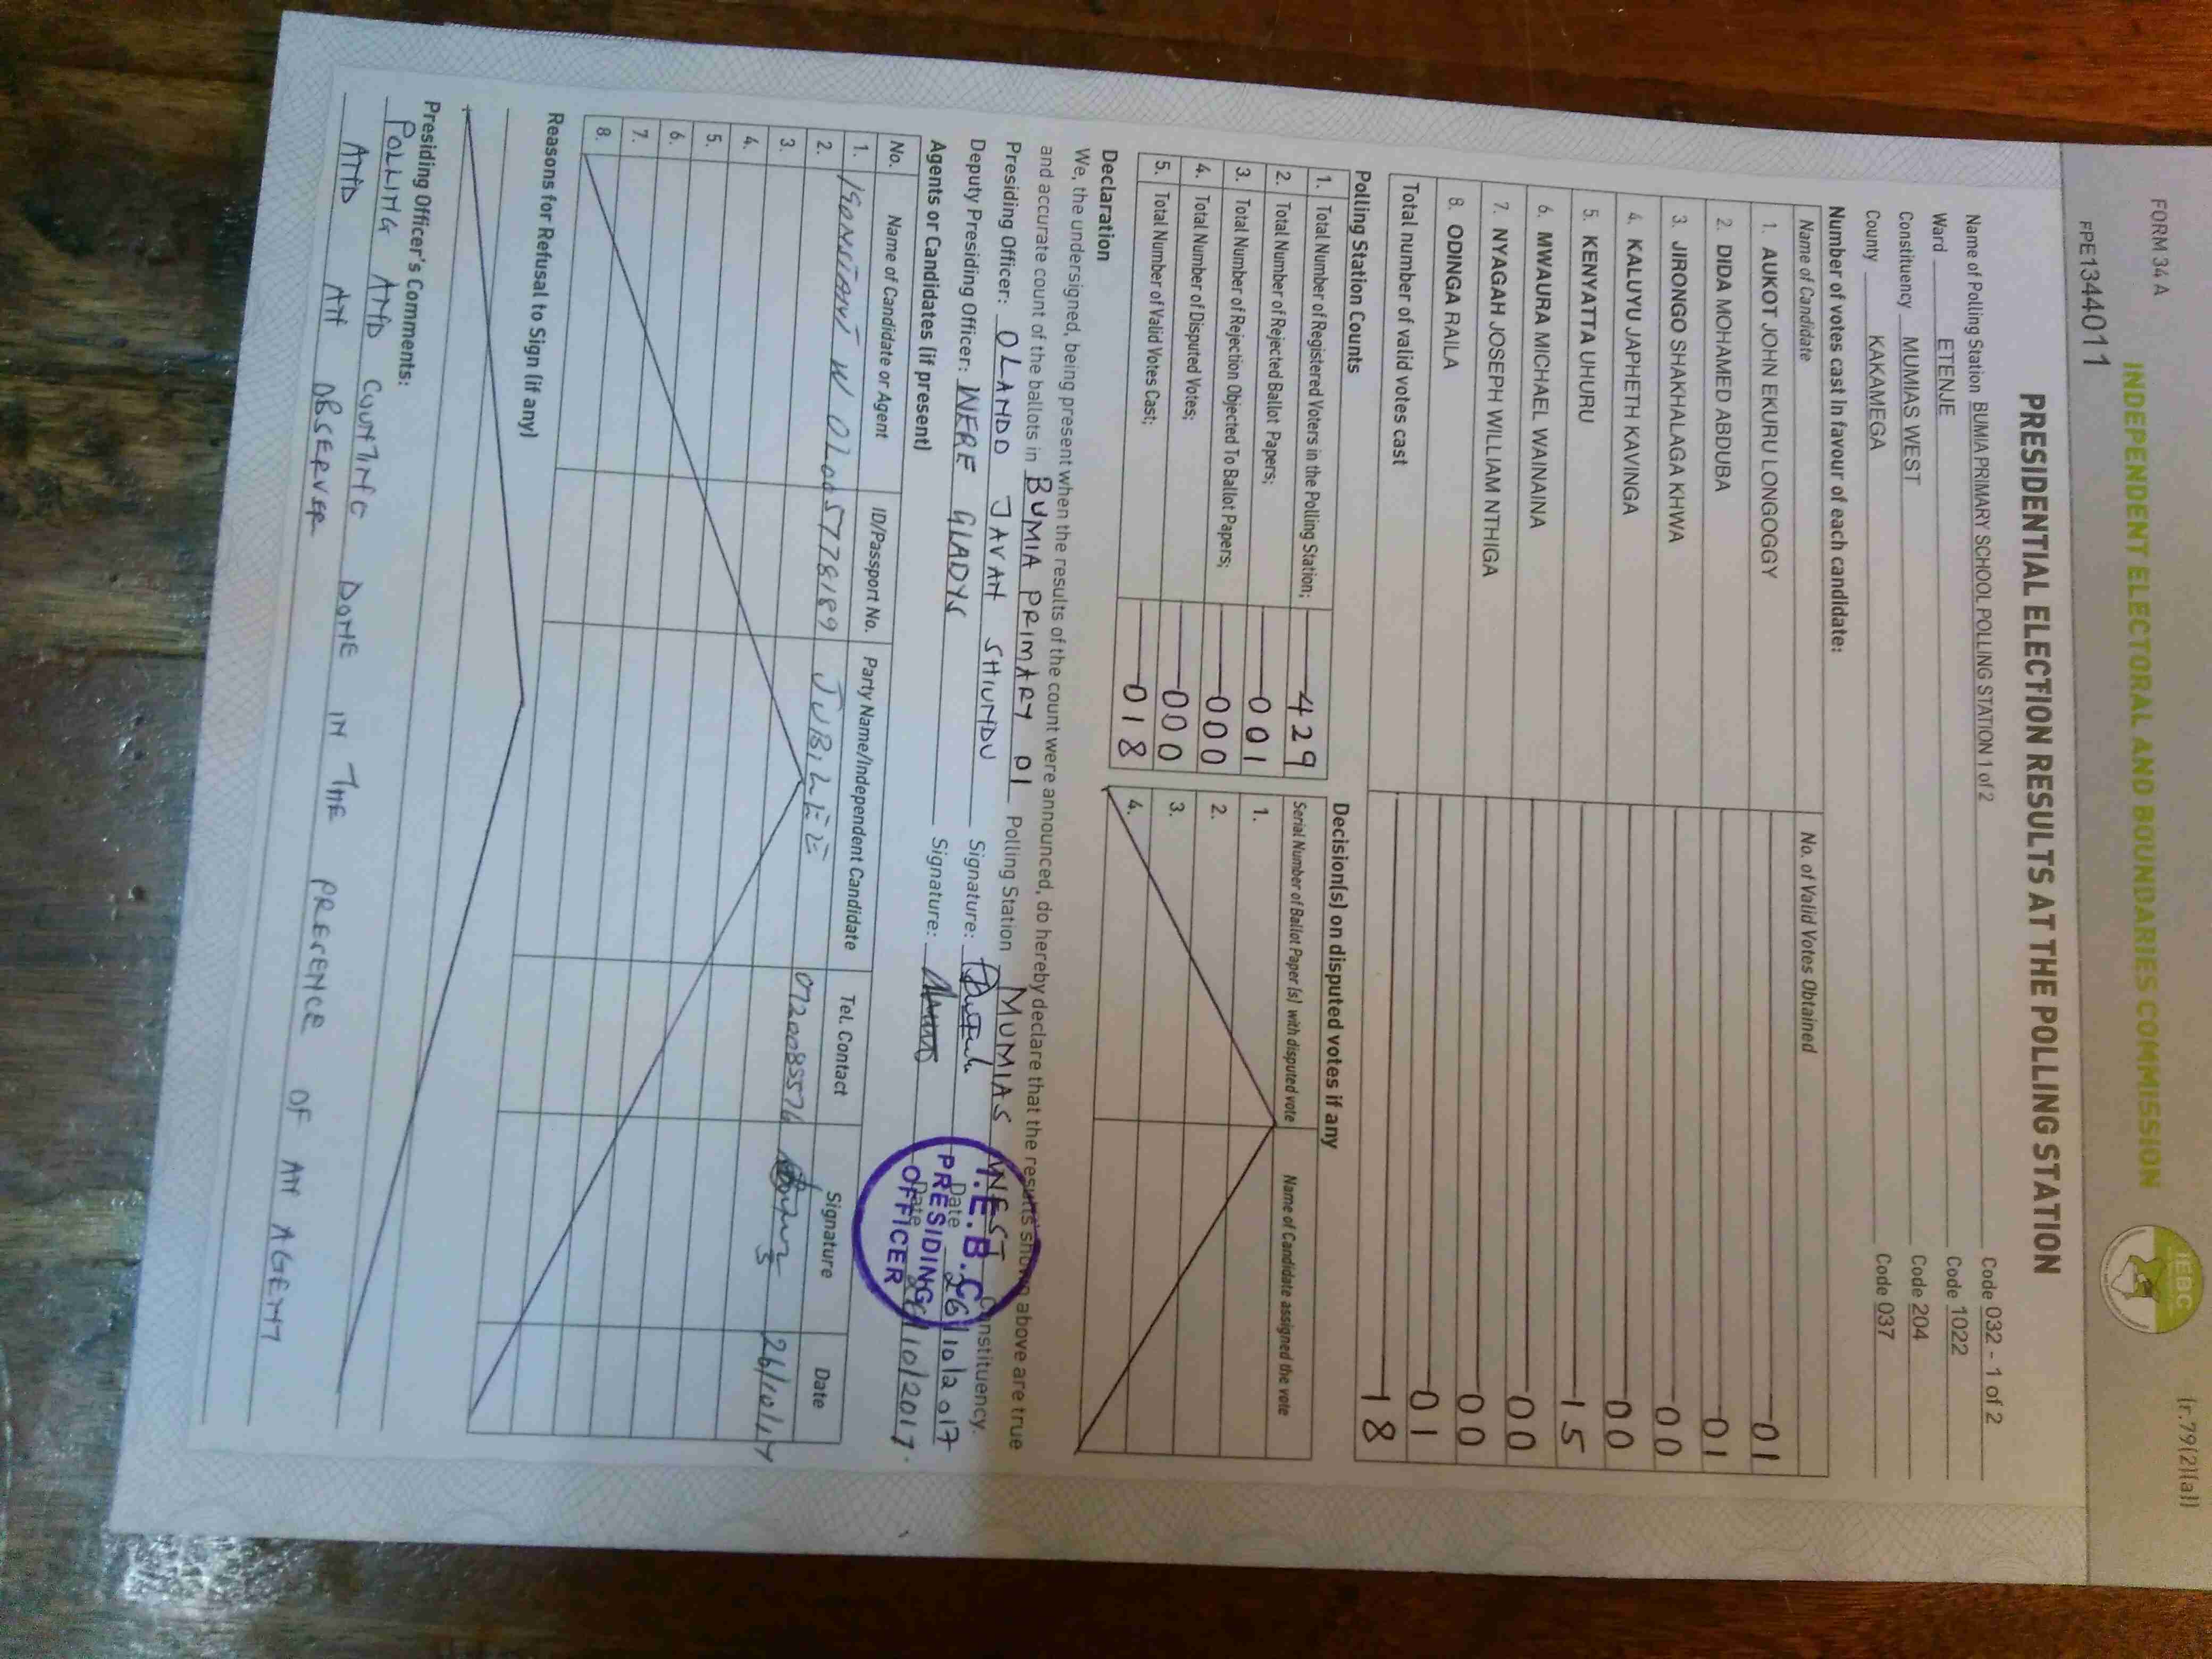 FORM 34 A
(r.79(2)(a))
INDEPENDENT ELECTORAL AND BOUNDARIES COMMISSION
IEBC
PPE1344011
PRESIDENTIAL ELECTION RESULTS AT THE POLLING STATION
Name of Polling Station BUMIA PRIMARY SCHOOL POLLING STATION 1 of 2 Code 032 - 1 of 2
Ward ETENJE Code 1022
Constituency MUMIAS WEST Code 204
County KAKAMEGA Code 037
Number of votes cast in favour of each candidate:
Name of Candidate No. of Valid Votes Obtained
1. AUKOT JOHN EKURU LONGOGGY 01
2. DIDA MOHAMED ABDUBA 01
3. JIRONGO SHAKHALAGA KHWA 00
4. KALUYU JAPHETH KAVINGA 00
5. KENYATTA UHURU 15
6. MWAURA MICHAEL WAINAINA 00
7. NYAGAH JOSEPH WILLIAM NTHIGA 00
8. ODINGA RAILA 01
Total number of valid votes cast 18
Polling Station Counts
1. Total Number of Registered Voters in the Polling Station; 429
2. Total Number of Rejected Ballot Papers; 001
3. Total Number of Rejection Objected To Ballot Papers; 000
4. Total Number of Disputed Votes; 000
5. Total Number of Valid Votes Cast; 018
Decision(s) on disputed votes if any
Serial Number of Ballot Paper (s) with disputed vote Name of Candidate assigned the vote
1.
2.
3.
4.
Declaration
We, the undersigned, being present when the results of the count were announced, do hereby declare that the results shown above are true
and accurate count of the ballots in BUMIA PRIMARY 01 Polling Station MUMIAS WEST Constituency.
Presiding Officer: OLANDO JAVAN SHIUNDU Signature: Date 26/10/2017
Deputy Presiding Officer: WERE GLADYS Signature: Date 26/10/2017.
I.E.B.C
PRESIDING
OFFICER
Agents or Candidates (if present)
No. Name of Candidate or Agent ID/Passport No. Party Name/Independent Candidate Tel. Contact Signature Date
1. W 5778189 JUBILEE 0720085576 26/10/17
2.
3.
4.
5.
6.
7.
8.
Reasons for Refusal to Sign (if any)
Presiding Officer's Comments:
POLLING AND COUNTING DONE IN THE PRECENCE OF AN AGENT
AND AN OBSERVER